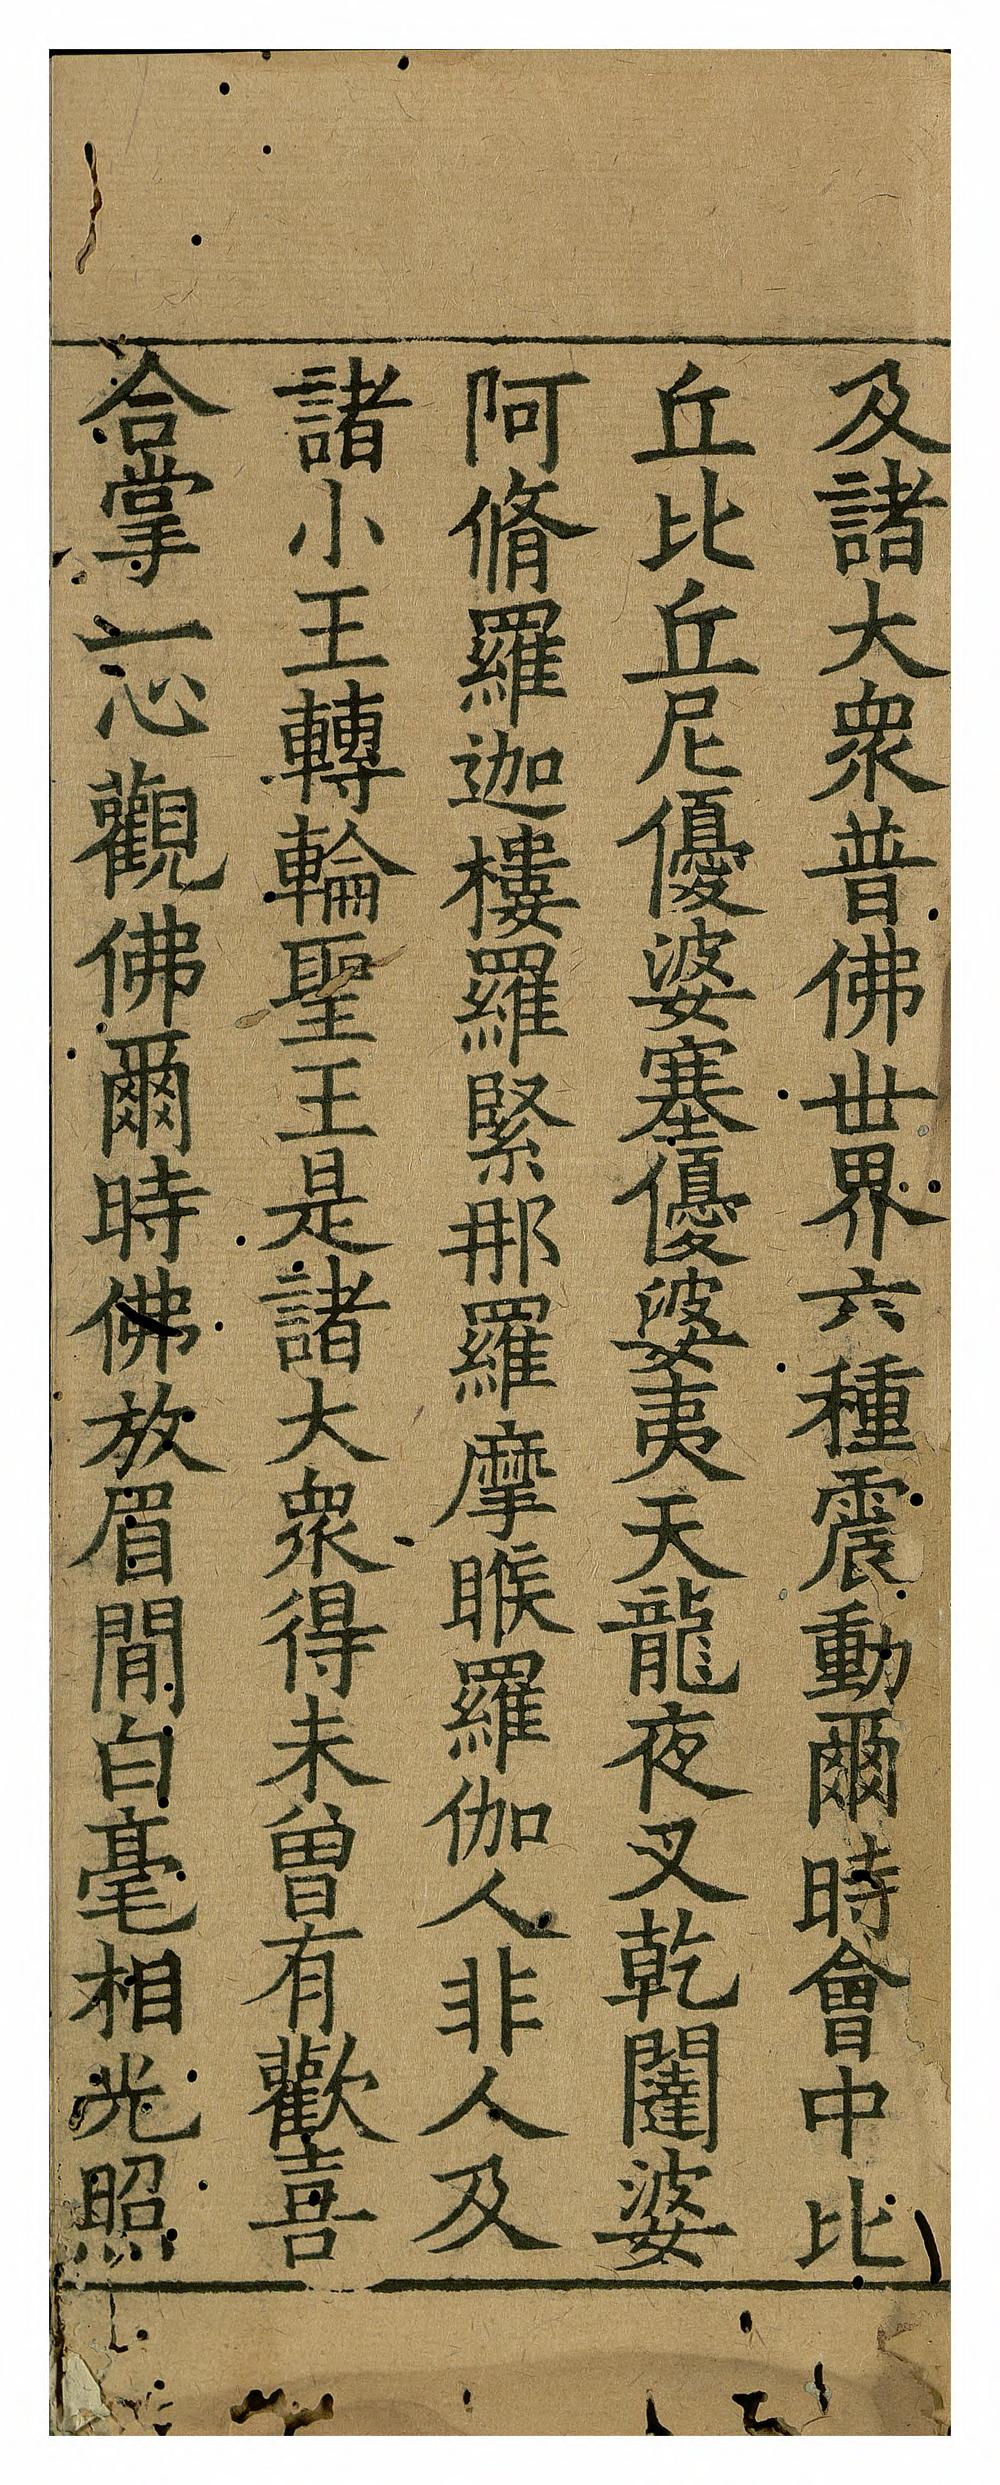 及諸大衆普佛世界六種震動爾時會中比
丘比丘尼優婆塞優婆夷天龍夜叉乾闥婆
阿脩羅迦樓羅緊那羅摩睺羅伽人非人及
諸小王轉輪聖王是諸大衆得未曾有歡喜
合掌一心觀佛爾時佛放眉間白毫相光照